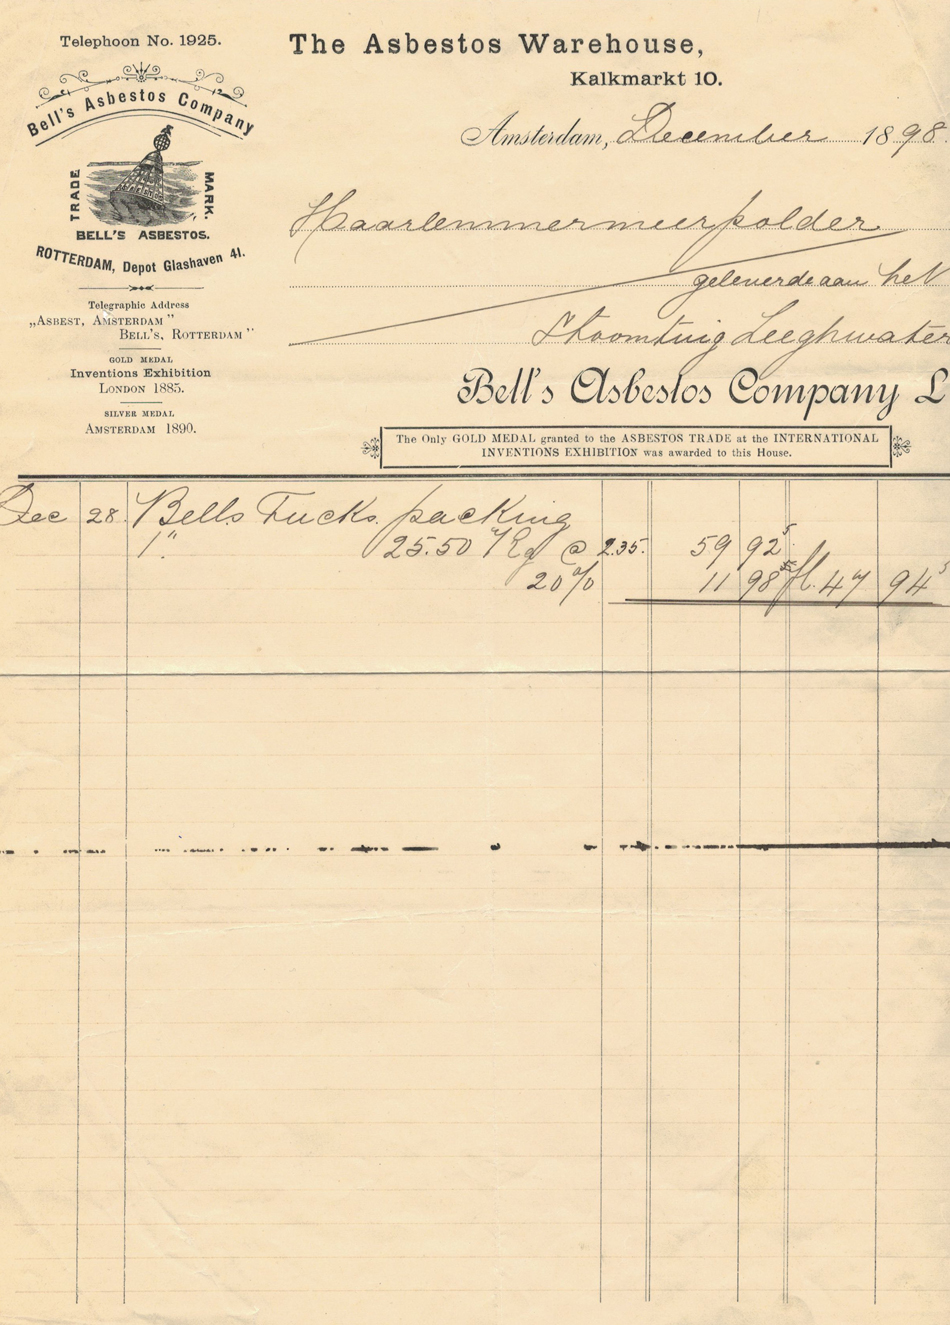 Telephoon No. 1925.
Bell's Asbestos Company
TRADE MARK.
BELL'S ASBESTOS.
ROTTERDAM, Depot Glashaven 41.
Telegraphic Address
„ASBEST, AMSTERDAM”
BELL'S, ROTTERDAM”
GOLD MEDAL
Inventions Exhibition
LONDON 1885.
SILVER MEDAL
AMSTERDAM 1890.
The Asbestos Warehouse,
Kalkmarkt 10.
Amsterdam, December 1898
Haarlemmermeerpolder
geleverde aan het
Stoomtuig Leeghwater
Bell's Asbestos Company L
The Only GOLD MEDAL granted to the ASBESTOS TRADE at the INTERNATIONAL
INVENTIONS EXHIBITION was awarded to this House.
Dec 28. Bells Tucks packing
1" 25.50 Kg @ 2.35. 59 92⁵
20% 11 98⁵ fl. 47 94⁵